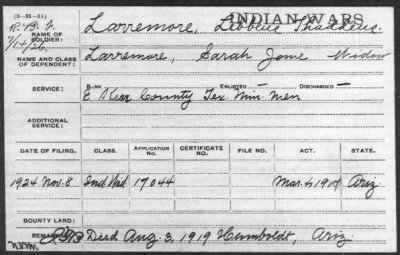 (3-23-11)
INDIAN WARS
7/14/26.
NAME OF SOLDIER: Larremore, Thaddeus.
NAME AND CLASS OF DEPENDENT: Larremore, Sarah Jane Widow
SERVICE: RANK ENLISTED — DISCHARGED —
County Tex. Min Men
ADDITIONAL SERVICE:
DATE OF FILING. CLASS. APPLICATION No. CERTIFICATE NO. FILE NO. ACT. STATE.
1924 Nov. 8 Ind Wid 17044 Mar. 4 1917 Ariz
BOUNTY LAND:
REMARKS: Died Aug. 3, 1919 Humboldt, Ariz.